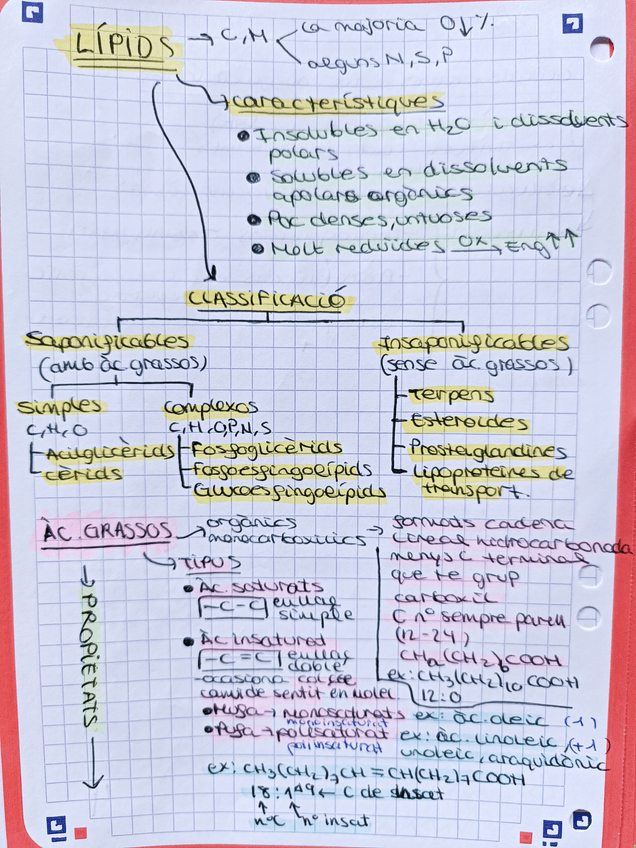 LÍPIDS → C, H
La majoria O↓%
alguns N, S, P
característiques
• Insolubles en H2O i dissolvents
polars
• solubles en dissolvents
apolars orgànics
• Poc denses, untuoses
• Molt reduïdes OX→ Eng↑↑
CLASSIFICACIÓ
Saponificables
(amb àc. grassos)
Simples
C, H, O
Acilglicèrids
cèrids
Complexos
C, H, O, P, N, S
Fosfoglicèrids
Fosfoesfingolípids
Glucoesfingolípids
Insaponificables
(sense àc. grassos)
Terpens
Esteroides
Prostaglandines
Lipoproteïnes de
transport.
ÀC. GRASSOS → orgànics
monocarboxílics
→ formats cadena
lineal hidrocarbonada
menys C terminal
que te grup
carboxil
C nº sempre parell
(12-24)
CHa(CH2)bCOOH
ex: CH3(CH2)10COOH
12:0
→ PROPIETATS →
→ TIPUS
• Àc. saturats
-C-C enllaç
simple
• Àc insatured
-C=C enllaç
doble
ocasiona colze
canvi de sentit en molec
• Mufa → monosaturats ex: àc. oleic (1)
monoinsaturat
• Pufa → polisaturat ex: àc. linoleic, (+1)
poliinsaturat
linoleic, araquidònic
ex: CH3(CH2)7CH=CH(CH2)7COOH
18:1Δ9 ← C de insat
nºC
nº insat